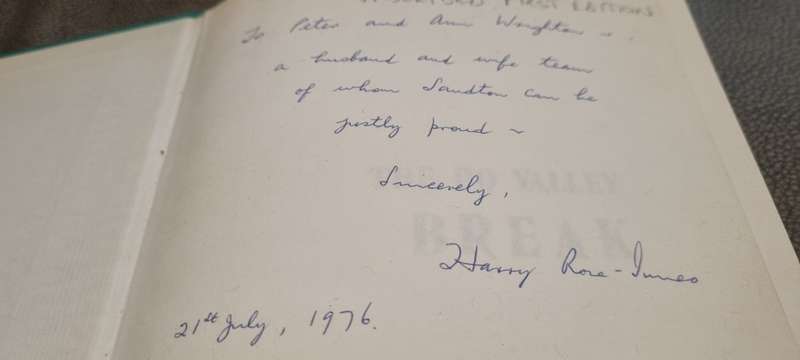 FIRST EDITIONS
To Peter and Ann Wrighton -
a husband and wife team
of whom Sandton can be
justly proud ~
Sincerely,
Harry Rose-Innes
21st July, 1976.
PO VALLEY
BREAK